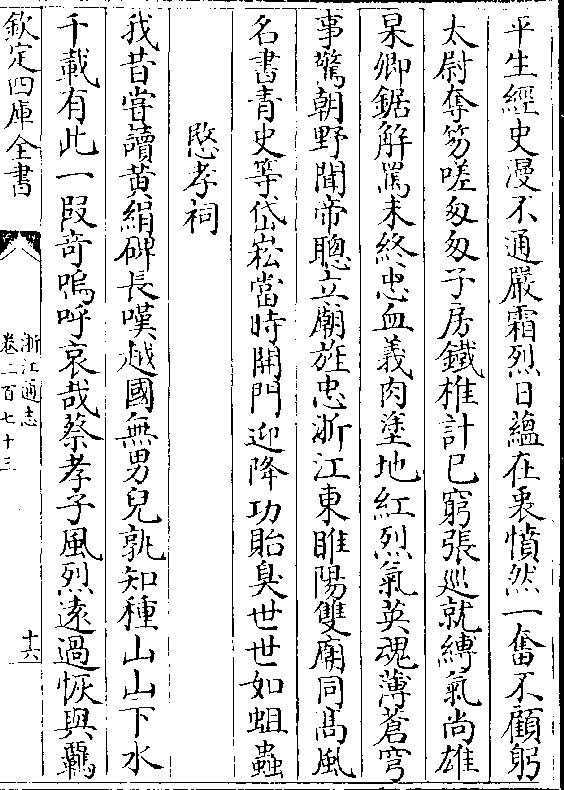 平生經史漫不通嚴霜烈日蘊在衷憤然一奮不顧躬
太尉奪笏嗟匆匆子房鐵椎計已窮張廵就縛氣尚雄
杲卿鋸解罵未終忠血義肉塗地紅烈氣英魂薄蒼穹
事驚朝野聞帝聰立廟旌忠浙江東睢陽雙廟同髙風
名書青史等岱崧當時開門迎降功貽臭世世如蛆蟲
愍孝祠
我昔嘗讀黄絹碑長嘆越國無男兒孰知種山山下水
千載有此一段竒嗚呼哀哉蔡孝子風烈逺過恢與覊
欽定四庫全書
浙江通志
卷二百七十三
十六